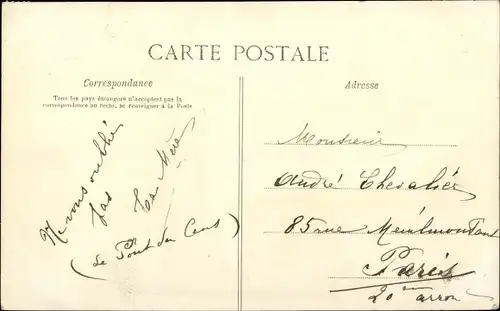 CARTE POSTALE
Correspondance
Tous les pays étrangers n'acceptent pas la
correspondance au recto, se renseigner à la Poste
Adresse
pas
Ta Mère
(Le Pont du Cens)
Monsieur
André Chevalier
85 rue Ménilmontant
Paris
20 arron